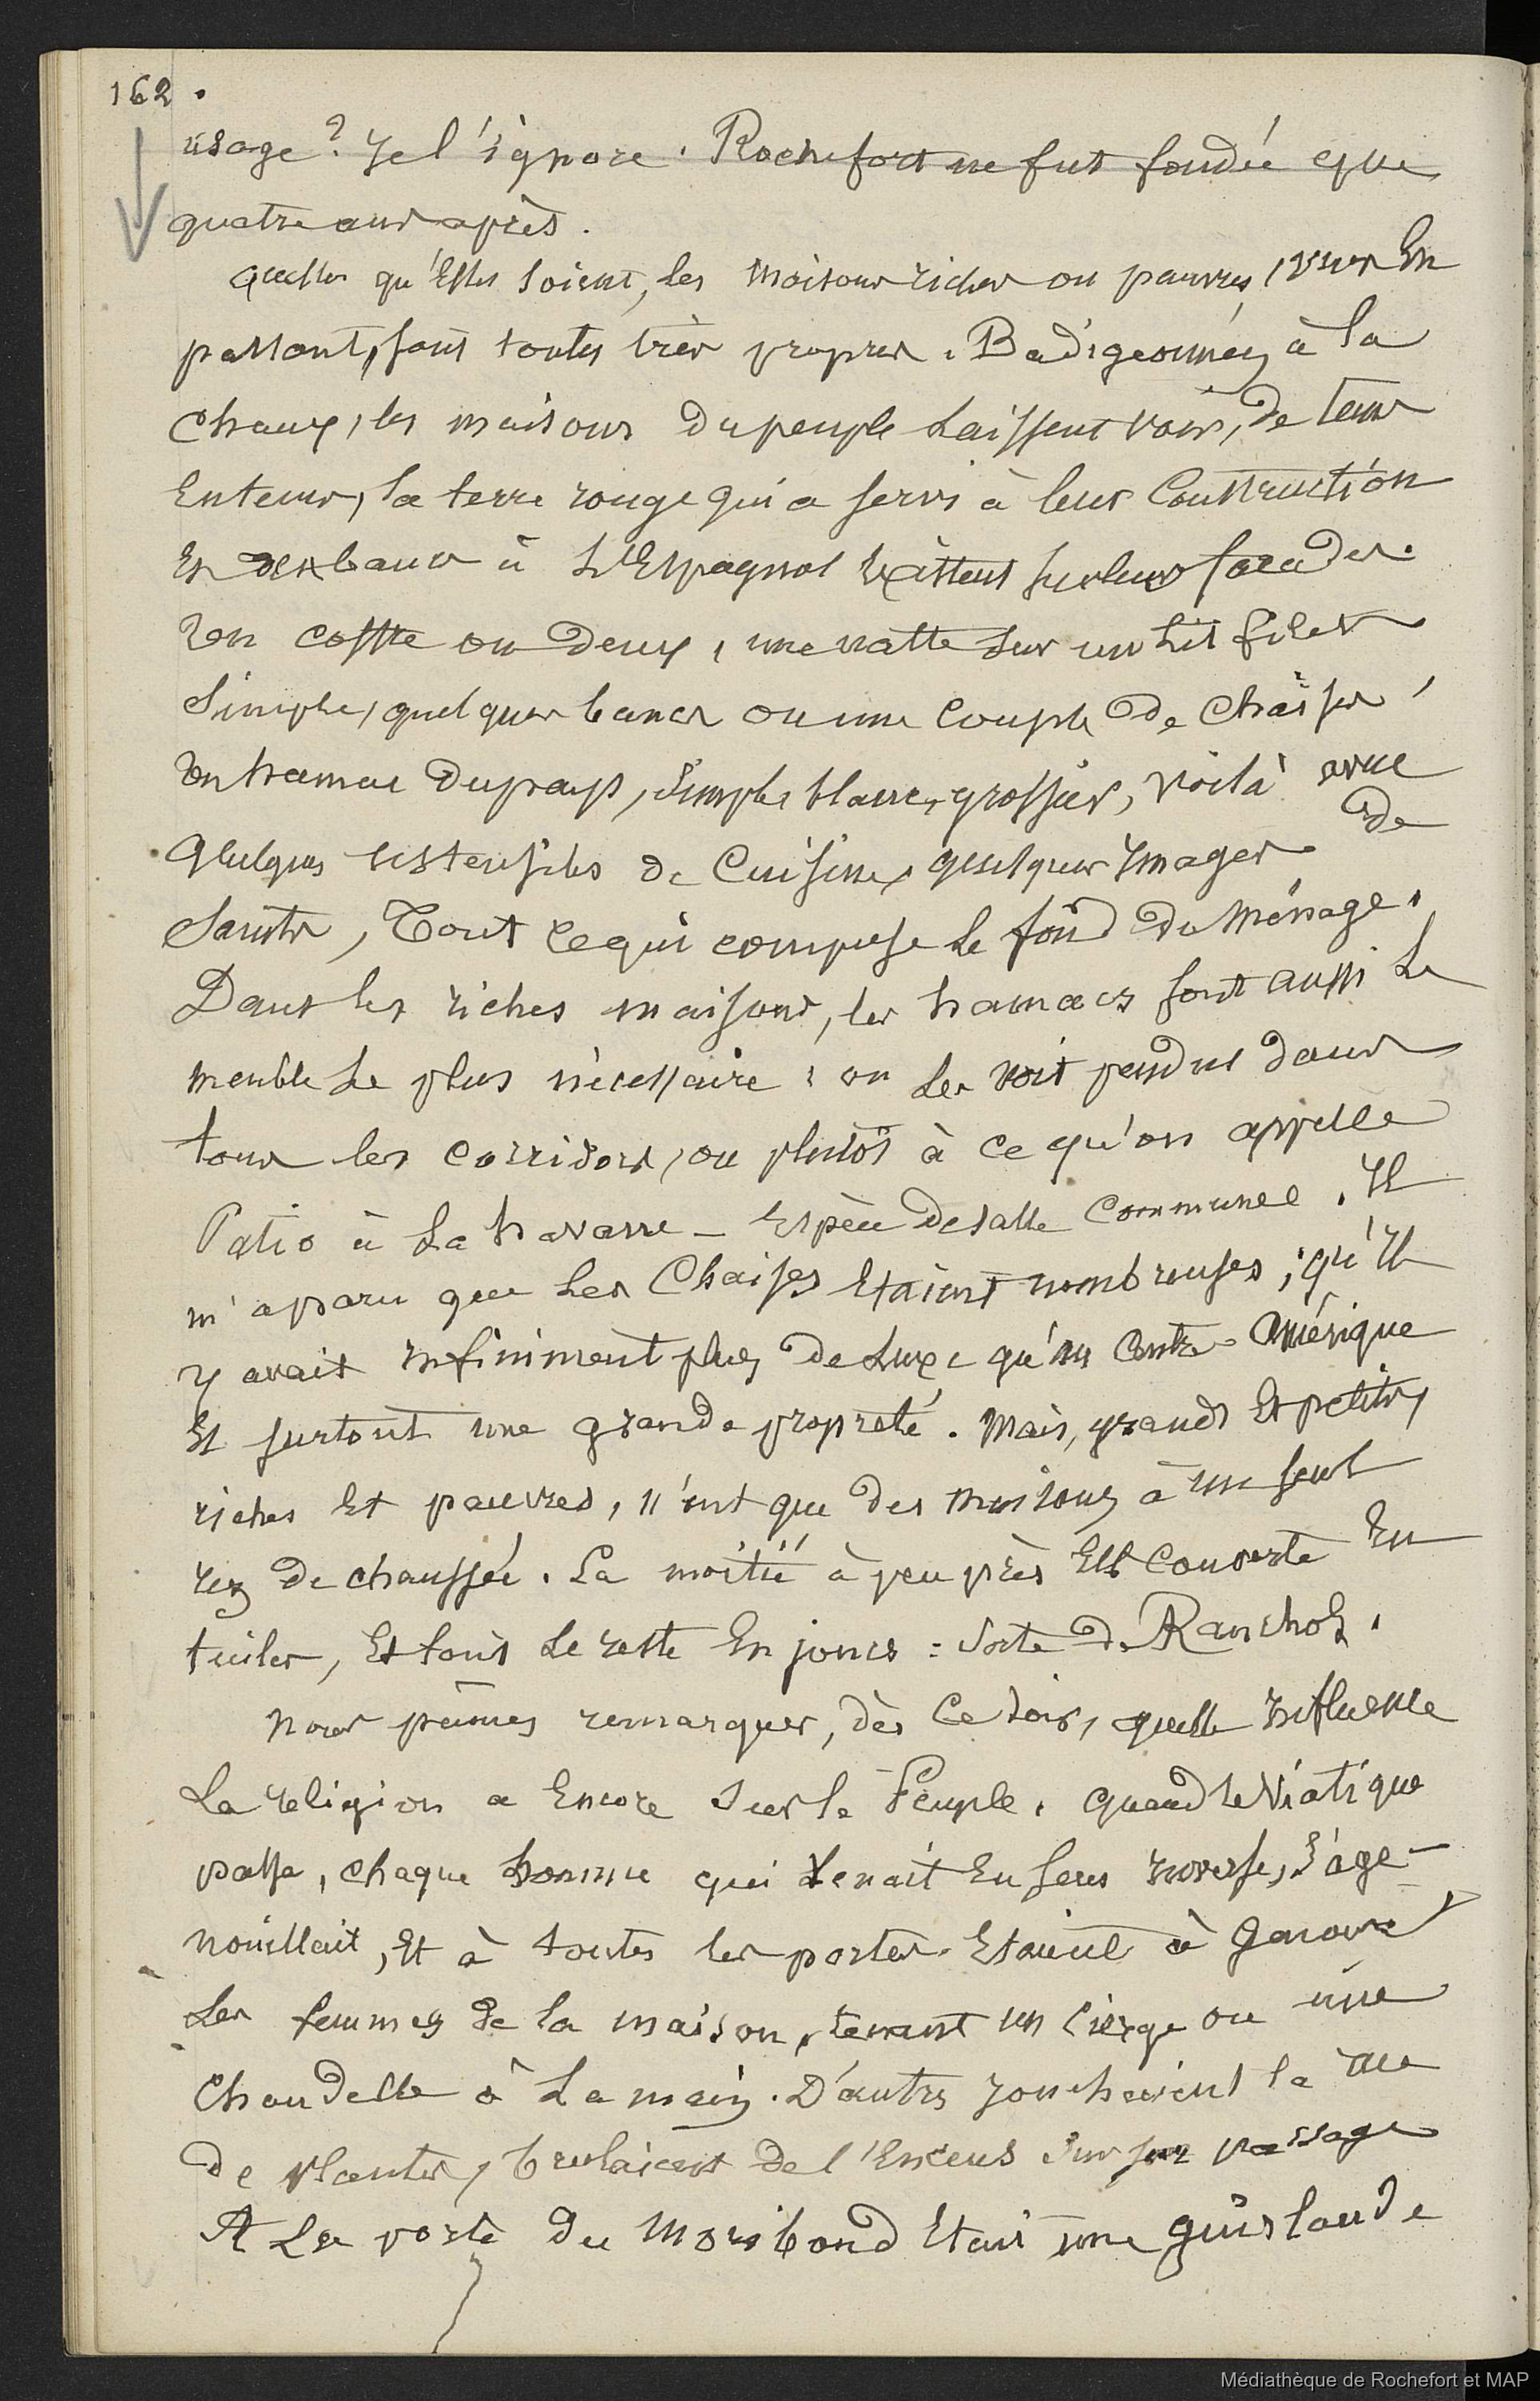 162.
usage? Je l'ignore. Rochefort ne fut fondée que
quatre ans après.
Quelles qu'Elles soient, les maisons riches ou pauvres, vues En
passant, sont toutes très propres. Badigeonnées à la
Chaux, les maisons du peuple laissent voir, de
la terre rouge qui a servi à leur Construction
Et bancs à L'Espagnol sur leurs façades.
Un coffre ou deux, une natte sur un lit filet
Simple, quelques bancs ou une couple de Chaises,
Un hamac du pays, Simple, blanc, grossier, voilà avec
quelques ustensiles de Cuisine, quelques Images de
Saints, Tout ce qui compose le fond du Ménage.
Dans les riches maisons, les hamacs sont aussi Le
meuble Le plus nécessaire : on Les voit pendus dans
tous les corridors, ou plutôt à ce qu'on appelle
Patio à La havane - Espèce de salle Commune. Il
m'a paru que Les Chaises Etaient nombreuses ; qu'Il
y avait Infiniment plus de Luxe qu'en Centre-Amérique
Et surtout une grande propreté. Mais, grands Et petits,
riches Et pauvres, n'ont que des maisons à un seul
rez de chaussée. La moitié à peu près Est Couverte En
tuiles, Et tout Le reste En joncs : Sorte de Ranchos.
Nous pûmes remarquer, dès Ce soir, quelle Influence
La religion a Encore sur le Peuple. Quand le Viatique
passe, chaque homme qui venait En sens Inverse, s'age-
nouillait, Et à toutes les portes Etaient à Genoux
Les femmes de la maison, tenant un Cierge ou une
Chandelle à La main. D'autres Jonchaient la rue
De plantes, brulaient de l'Encens Sur son passage
A La porte Du Moribond Etait une guirlande
Médiathèque de Rochefort et MAP